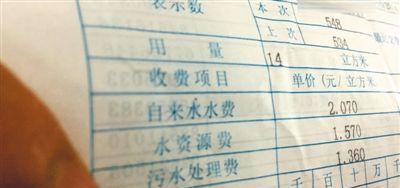 表示数 本 次 548
上 次 534
用 量 14 立方米
收费项目 单价（元/立方米
自来水水费 2.070
水资源费 1.570
污水处理费 1.360
千 百 十 万 千